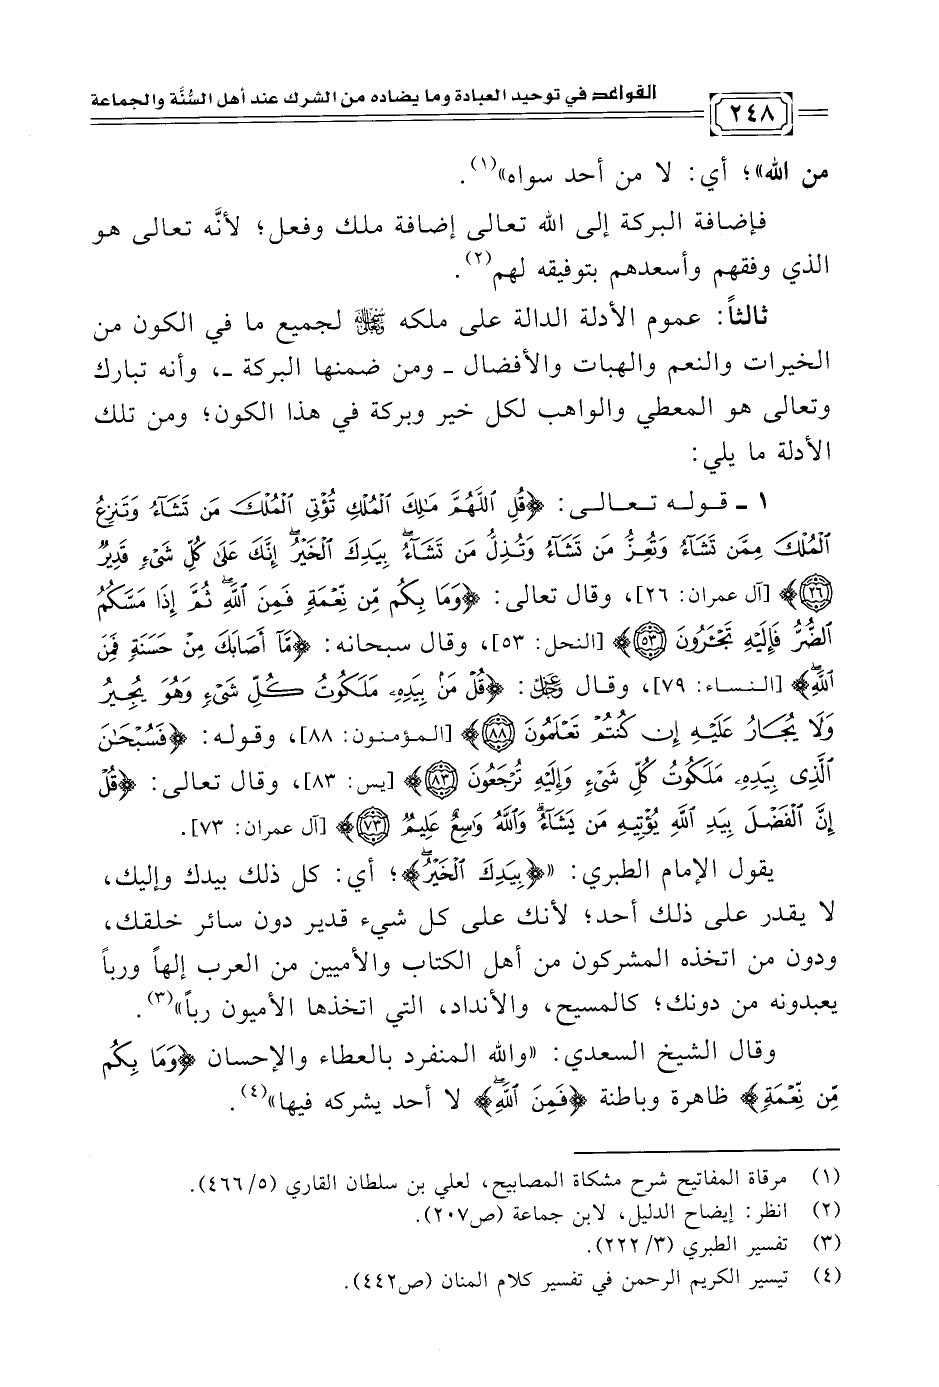 القواعد في توحيد العبادة وما يضاده من الشرك عند أهل السُّنَّة والجماعة
٢٤٨
من الله»؛ أي: لا من أحد سواه»(١).
فإضافة البركة إلى الله تعالى إضافة ملك وفعل؛ لأنَّه تعالى هو
الذي وفقهم وأسعدهم بتوفيقه لهم(٢).
ثالثاً: عموم الأدلة الدالة على ملكه ﷻ لجميع ما في الكون من
الخيرات والنعم والهبات والأفضال ـ ومن ضمنها البركة ـ، وأنه تبارك
وتعالى هو المعطي والواهب لكل خير وبركة في هذا الكون؛ ومن تلك
الأدلة ما يلي:
١ ـ قوله تعالى: ﴿قُلِ اللَّهُمَّ مَٰلِكَ ٱلْمُلْكِ تُؤْتِى ٱلْمُلْكَ مَن تَشَآءُ وَتَنزِعُ
ٱلْمُلْكَ مِمَّن تَشَآءُ وَتُعِزُّ مَن تَشَآءُ وَتُذِلُّ مَن تَشَآءُۖ بِيَدِكَ ٱلْخَيْرُۖ إِنَّكَ عَلَىٰ كُلِّ شَىْءٍ قَدِيرٌ
٢٦﴾ [آل عمران: ٢٦]، وقال تعالى: ﴿وَمَا بِكُم مِّن نِّعْمَةٍ فَمِنَ ٱللَّهِۖ ثُمَّ إِذَا مَسَّكُمُ
ٱلضُّرُّ فَإِلَيْهِ تَجْـَٔرُونَ ٥٣﴾ [النحل: ٥٣]، وقال سبحانه: ﴿مَّآ أَصَابَكَ مِنْ حَسَنَةٍ فَمِنَ
ٱللَّهِۖ﴾ [النساء: ٧٩]، وقال ﷻ: ﴿قُلْ مَنۢ بِيَدِهِۦ مَلَكُوتُ كُلِّ شَىْءٍ وَهُوَ يُجِيرُ
وَلَا يُجَارُ عَلَيْهِ إِن كُنتُمْ تَعْلَمُونَ ٨٨﴾ [المؤمنون: ٨٨]، وقوله: ﴿فَسُبْحَٰنَ
ٱلَّذِى بِيَدِهِۦ مَلَكُوتُ كُلِّ شَىْءٍ وَإِلَيْهِ تُرْجَعُونَ ٨٣﴾ [يس: ٨٣]، وقال تعالى: ﴿قُلْ
إِنَّ ٱلْفَضْلَ بِيَدِ ٱللَّهِ يُؤْتِيهِ مَن يَشَآءُۗ وَٱللَّهُ وَٰسِعٌ عَلِيمٌ ٧٣﴾ [آل عمران: ٧٣].
يقول الإمام الطبري: «﴿بِيَدِكَ ٱلْخَيْرُۖ﴾؛ أي: كل ذلك بيدك وإليك،
لا يقدر على ذلك أحد؛ لأنك على كل شيء قدير دون سائر خلقك،
ودون من اتخذه المشركون من أهل الكتاب والأميين من العرب إلهاً ورباً
يعبدونه من دونك؛ كالمسيح، والأنداد، التي اتخذها الأميون رباً»(٣).
وقال الشيخ السعدي: «والله المنفرد بالعطاء والإحسان ﴿وَمَا بِكُم
مِّن نِّعْمَةٍ﴾ ظاهرة وباطنة ﴿فَمِنَ ٱللَّهِۖ﴾ لا أحد يشركه فيها»(٤).
(١) مرقاة المفاتيح شرح مشكاة المصابيح، لعلي بن سلطان القاري (٤٦٦/٥).
(٢) انظر: إيضاح الدليل، لابن جماعة (ص٢٠٧).
(٣) تفسير الطبري (٢٢٢/٣).
(٤) تيسير الكريم الرحمن في تفسير كلام المنان (ص٤٤٢).